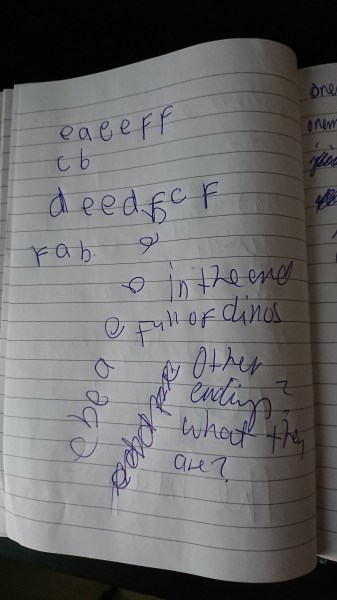 eaceff
cb
deed cf
fab
in the end
full of dinos
Other
endings?
what they
are?
ebea
onem